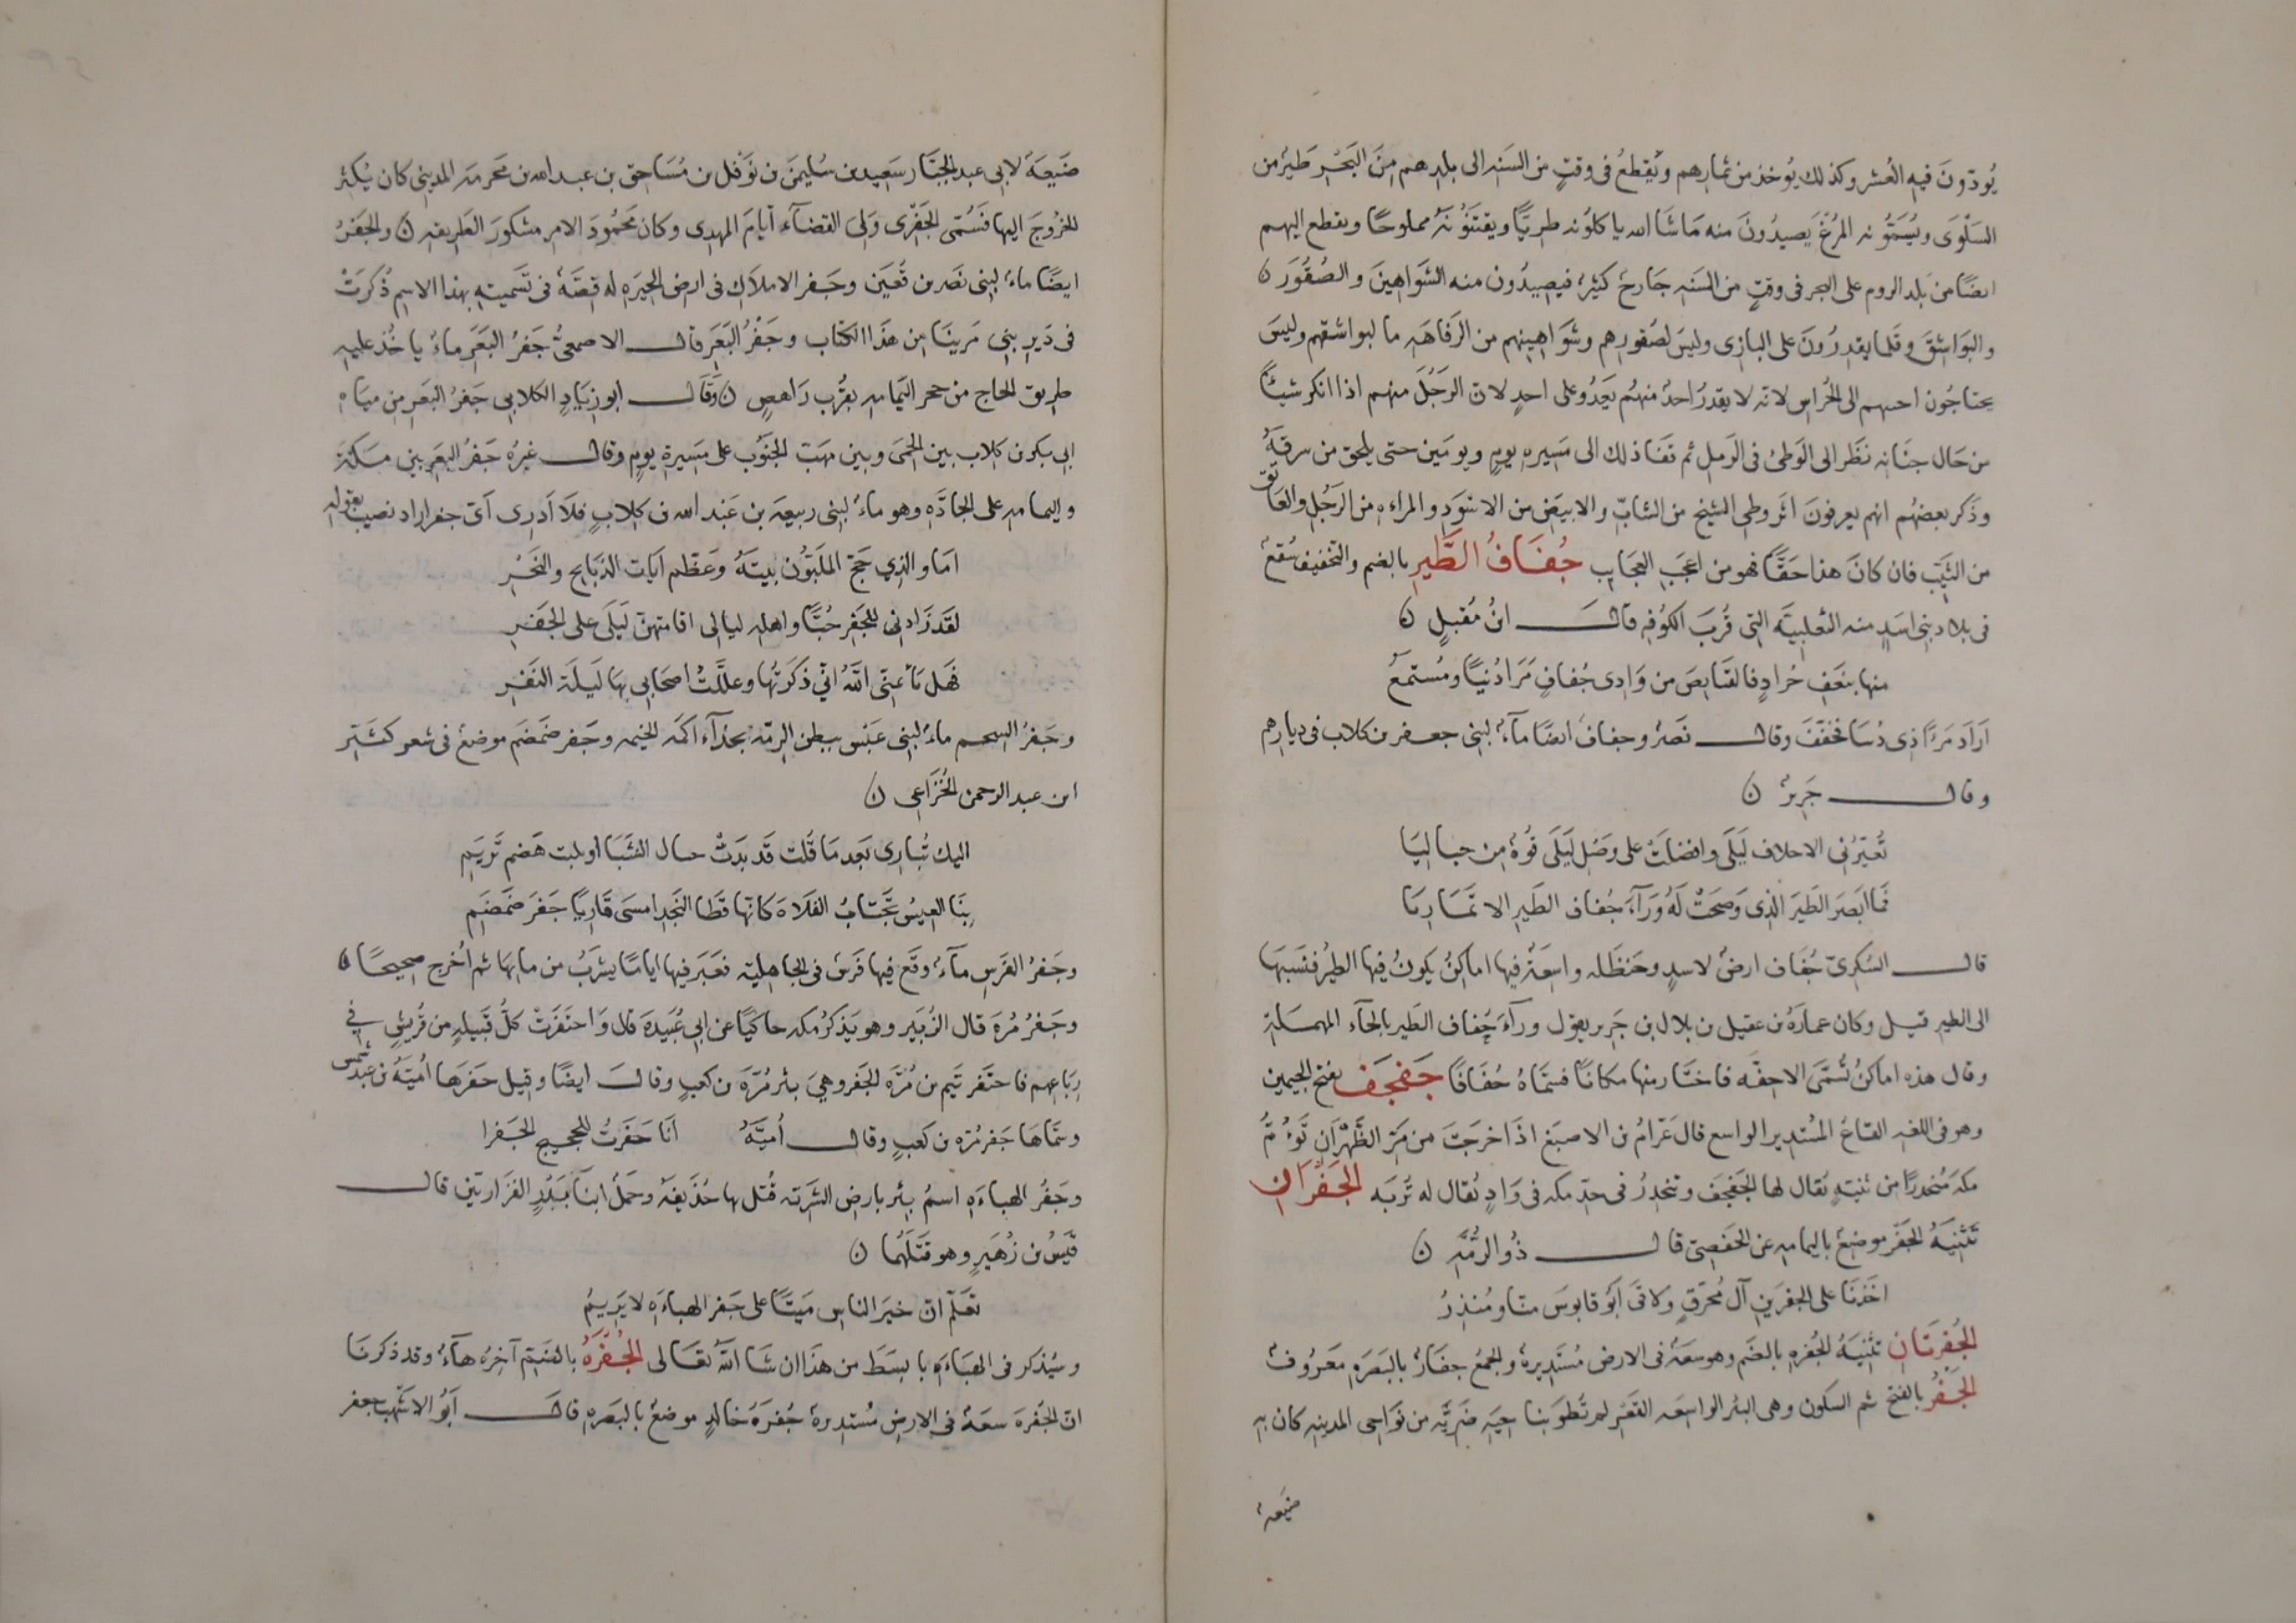 يُودّونَ فيه العُشر وكذلك يُوخذ من ثمارهم ويَقطعُ فى وقتٍ من السَنه الى بلدهم مِنَ البَحْر طَيرٌ من
السَلْوَى ويُسَمُّونه المُرغَ يَصيدُونَ منه مَا شَا الله ياكلُونه طريًّا ويقتنَوُنهُ مملوحًا ويقطع اليهم
ايضًا من بَلد الروم على البحر فى وقتٍ من السَنه جَارحٌ كثيرٌ فيصيدُون منه الشَوَاهينَ والصُقُورَ ن
والبَوَاشقَ وقَلما يقدرُونَ على البازى وليسَ لصُقورهم وشَوَاهينهم من الرَفاهَه ما لبواشقهم وليسَ
يحتاجُون احبهم الى الحُراس لانه لا يقدرُ احدٌ منهُم يَعدُو على احدٍ لان الرَجُلَ منهم اذا انكر شيئًا
من حَال جنَانه نَظَر الى الوَطئ فى الرَمل ثم تقفا ذلك الى مَسِيره يومٍ ويومَين حتى يلحق من سرقهُ
وذَكر بعضهُم انهم يعرفونَ اثر وطى الشيخ من الشابّ والابيَض من الاسوَد والمراه من الرَجُل والعَاتق
من الثَيِّب فان كانَ هذا حَقًّا فهو من اعجَب العجَايب جُفَافُ الطَّيرِ بالضم والتخفيف صُقعٌ
فى بلاد بنى اسَدٍ منه الثعلبيَّه التى قُربَ الكوُفه قالَ ابنُ مُقبلٍ ن
منها بنَعَفِ جُرادٍ فالقَبايصَ من وَادى جُفافٍ مَرَا دُنيًا ومُستمعُ
ارَادَ مَرَءًا ذى دُنيَا فخَفّفَ وقال نَصرٌ وجفافٌ ايضًا مآءٌ لبنى جعفر بن كلاب فى ديارهم
وقال جَريرٌ ن
تُعَيّرُنى الاحلاف لَيلَى وافضلَتْ على وَصل لَيلَى قُوةٌ من حباليَا
فمَا ابصَرَ الطَيرَ الذى وَضحَتْ لَهُ وَرَآءَ جُفاف الطَيرِ الا تمَاريَا
قال السُكرىّ جُفَاف ارضٌ لاسدٍ وحَنظله واسعَةٌ فيها اماكنُ يكونُ فيها الطيرُ فنَسَبهَا
الى الطير قيل وكان عمارَةُ بن عقيل بن بلال بن جَرير يقول ورآءَ حِفاف الطَير بالحآء المهملة
وقال هذه اماكنُ تُسَمَّى الاحِفّه فاختَار منها مكانًا فسَمّاهُ حُفَافًا جَفجَف بفتح الجيمين
وهو فى اللغه القاعُ المُستدير الواسع قال عَرّامُ بن الاصبَغ اذَا خرجَتَ من مَرّ الظَهْرَان تَؤمُّ
مكهَ مُنحدرًا من ثنيّةٍ يُقال لها الجَفجَف وتنحَدِرُ فى حدّ مكه فى وَادٍ يُقال له تُربَه الجَفْرَانِ
تَثنيَهُ الجَفْر موضعٌ باليمامه عن الحَفصِىّ قال ذُو الرُمَّه ن
اخَذنَا على الجفرَينِ آلَ مُحرّقٍ ولاقَى ابَوُ قابوسَ منّا ومُنذِرُ
الجُفرَتَانِ تثنيَهُ الجُفره بالضَم وهو سعَةٌ فى الارض مُستَديرَةٌ والجمعُ جفَارٌ بالبَصَرَه مَعرُوفٌ
الجَفْرُ بالفتح ثم السكون وهى البئر الواسعَه القَعْر لم تُطوَ بناحيَه ضَريَّه من نَوَاحى المدينه كان به
ضيَعهٌ
ضَيعَةٌ لابى عبد الجبَّار سَعِيد بن سُليمَن بن نَوْفل بن مُسَاحق بن عبد الله بن مَخرمه المدينى كان يُكثرُ
الخُروجَ اليها فَسُمّى الجَفْرِى وَلِىَ القضآءَ ايّامَ المهدى وكان مَحمُودَ الامر مشكورَ الطريقه ن والجَفْرُ
ايضًا ماءٌ لبنى نَصر بن قُعَين وجَفر الاملاَك فى ارض الحيَره له قصَةٌ فى تَسَميتِه بهذا الاسم ذُكرَتْ
فى دَير بنى مَرينَا من هَذَا الكتاب وجَفْرُ البَعَر قال الاصمعىُّ جَفرُ البَعَر ماءٌ ياخُذ عليه
طريق الحاج من حجر اليَمامه بقُرب رَاهصٍ ن وقَالَ ابو زيَادٍ الكلابى جَفرُ البَعَر من ميَاه
ابى بكر بن كلاب بين الحمَى وبين مهَبّ الجنَوُب على مَسِيرة يومٍ وقال غيرُه جَفرُ البَعَر بين مَكةَ
واليمامه على الجادَّه وهو ماءٌ لبنى ربيعه بن عَبَد الله بن كلابٍ فلَا اَدرى اَىّ جفر اراد نصيب بقوله
امَا والذِى حَجّ المُلَبّوُن بيتَهُ وعَظّم آيات الذبَايح والنَحْرِ
لقَد زَادنى للجَفر حُبًّا واهله ليالى اقامتهنّ لَيلَى على الجَفرِ
فهَل يأثمنّى اللهُ انّى ذكرتُها وعلّلتُ اصحَابى بهَا لَيلَة النَفْرِ
وجَفرُ الشحم ماءٌ لبنى عَبَس ببطن الرمّه بحذآء اكمَه الخيمه وجَفر ضَمضَم موضعٌ فى شعر كُثَيّر
ابن عبد الرحمن الخُزَاعى ن
اليك تُبارى بَعدمَا قُلت قَد بَدَتْ حبال الشَبَا او نكبت هَضم تَريَمِ
بنَا العيسُ تَجتابُ الفَلاهَ كانّها قطَا النَجد امسَى قَاربًا جَفرَ ضَمضَمِ
وجَفرُ الفَرَس مآءٌ وقَع فيها فَرسٌ فى الجاهليّه فغبَر فيها ايامًا يشربُ من مايهَا ثم اُخرج صحيحًا ن
وجَفرُ مُرةَ قال الزُبَير وهو يَذكرُ مكه حاكيًا عن ابى عُبَيدَة قال وَاحتفَرَتْ كلُ قبيلهٍ من قُريشٍ فى
رِبَاعهم فاحتَفر تَيم بن مُرَّه الجَفر وهىَ بئر مُرّةَ بن كعبٍ وقالَ ايضًا وقيل حَفرَها اُميّةُ بن عبد شمس
وسَمّاهَا جَفر مُرّه بن كعبٍ وقال اُميَّةُ انَا حَفَرتُ للحجيج الجَفرا
وجَفرُ الهباءَهِ اسمُ بئر بارض الشَرَبّه قُتل بها حُذَيفَةُ وحَملُ ابنَا بَدْرٍ الفَزَاريّين قال
قَيسُ بن زُهَيرٍ وهو قتَلَهُما ن
تعَلّم انّ خيَر الناس مَيتًا على جَفر الهباءَه لا يَريمُ
وسَيُذكر فى الهبَاءَه بابسَطَ من هذَا ان شَا اللهُ تعَالى الجُفْرَهُ بالضَمّ آخرُه هآءٌ وقد ذكرنَا
انّ الجُفرةَ سعَةٌ فى الارض مُستديرةٌ جُفرَهُ خالدٍ موضعٌ بالبَصره قالَ اَبَوُ الاشهَب جعفر